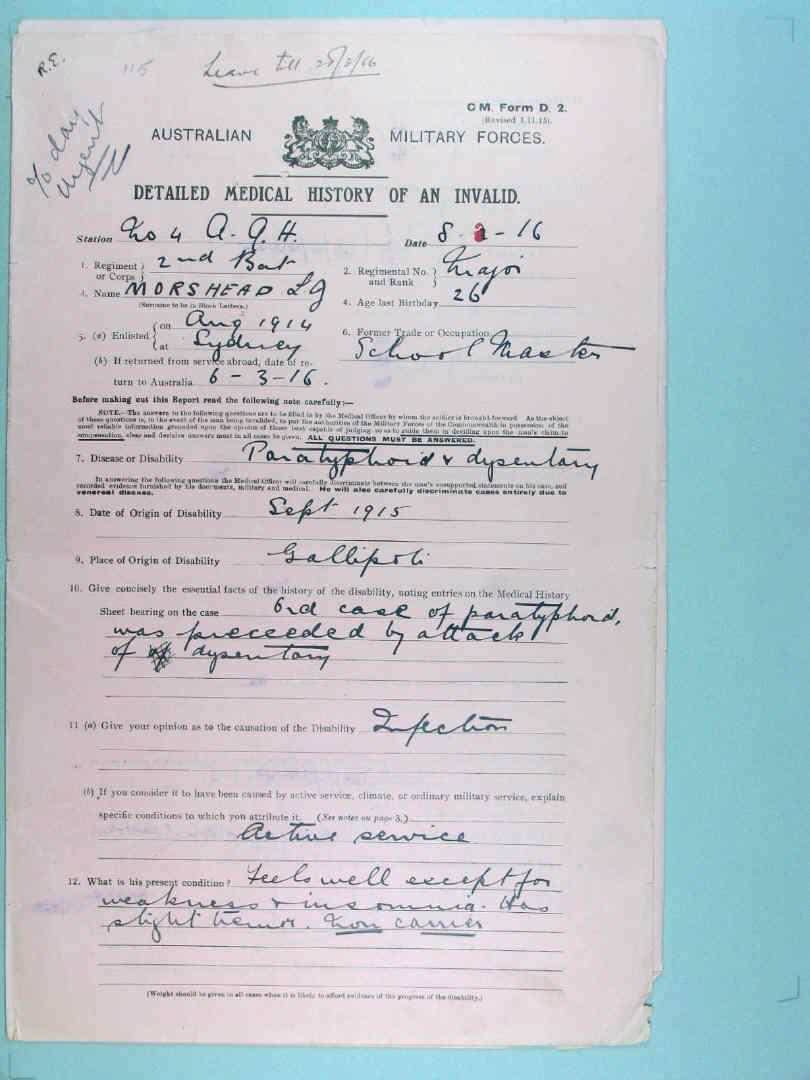 R.E.
115
Leave till 28/3/16
C M. Form D. 2.
(Revised 1.11.15).
AUSTRALIAN MILITARY FORCES.
% day
urgent
DETAILED MEDICAL HISTORY OF AN INVALID.
Station No 4 A. G. H. Date 8 - - 16
1. Regiment or Corps 2nd Bat 2. Regimental No. and Rank Major
3. Name MORSHEAD L G 4. Age last Birthday 26
(Surname to be in Block Letters.)
5. (a) Enlisted on Aug 1914 at Sydney 6. Former Trade or Occupation School Master
(b) If returned from service abroad, date of re-
turn to Australia 6 - 3 - 16 .
Before making out this Report read the following note carefully:—
NOTE.—The answers to the following questions are to be filled in by the Medical Officer by whom the soldier is brought forward. As the object
of these questions is, in the event of the man being invalided, to put the authorities of the Military Forces of the Commonwealth in possession of the
most reliable information grounded upon the opinion of those best capable of judging, so as to guide them in deciding upon the man's claim to
compensation, clear and decisive answers must in all cases be given. ALL QUESTIONS MUST BE ANSWERED.
7. Disease or Disability Paratyphoid & dysentary
In answering the following questions the Medical Officer will carefully discriminate between the man's unsupported statements on his case, and
recorded evidence furnished by his documents, military and medical. He will also carefully discriminate cases entirely due to
venereal disease.
8. Date of Origin of Disability Sept 1915
9. Place of Origin of Disability Gallipoli
10. Give concisely the essential facts of the history of the disability, noting entries on the Medical History
Sheet bearing on the case Ord case of paratyphoid,
was preceeded by attack
of dysentary
11 (a) Give your opinion as to the causation of the Disability Infection
(b) If you consider it to have been caused by active service, climate, or ordinary military service, explain
specific conditions to which you attribute it. (See notes on page 3.)
Active service
12. What is his present condition? Feels well except for
weakness & insomnia. Has
slight tremor. Non carrier
(Weight should be given in all cases when it is likely to afford evidence of the progress of the disability.)